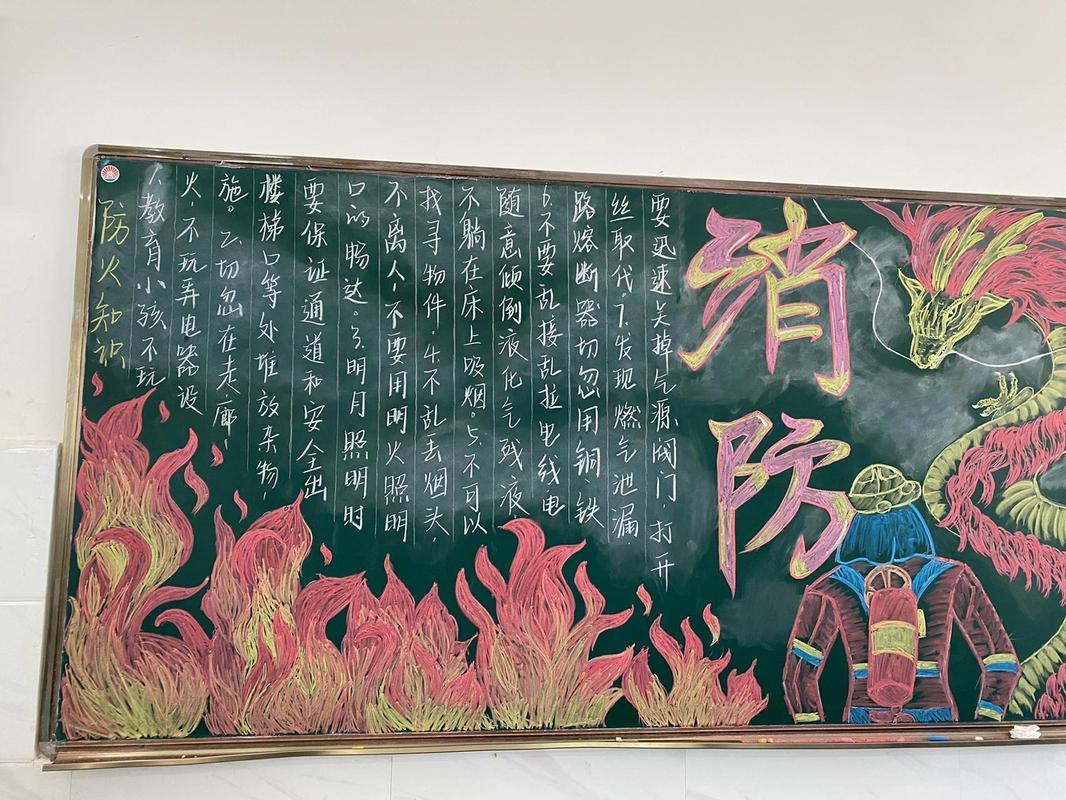 防火知识
1.教育小孩不玩
火,不玩弄电器设
施。2.切忽在走廊、
楼梯口等处堆放杂物,
要保证通道和安全出
口的畅达。3.明月照明时
不离人,不要用明火照明
找寻物件.4.不乱去烟头、
不躺在床上吸烟。5.不可以
随意倾倒液化气残液.
6.不要乱接乱拉电线电
路熔断器切忽用铜、铁
丝取代.7.发现燃气泄漏.
要迅速关掉气源阀门,打开
消防